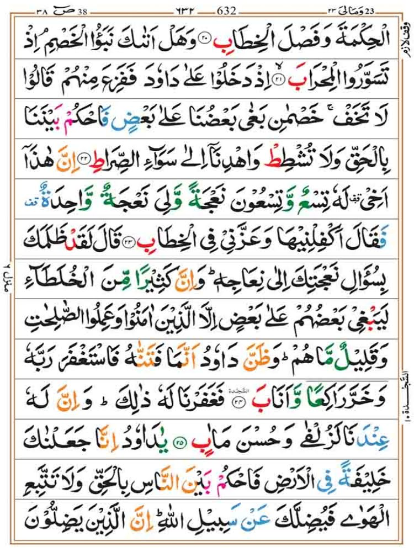 ٣٨ ص 38 ٦٣٢ 632 ٢٣ وَمَالِیَ 23
الْحِكْمَةَ وَفَصْلَ الْخِطَابِ ﴿٢٠﴾ وَهَلْ اَتٰىكَ نَبَؤُا الْخَصْمِۘ اِذْ
وقف لازم
تَسَوَّرُوا الْمِحْرَابَ ﴿٢١﴾ اِذْ دَخَلُوْا عَلٰى دَاوٗدَ فَفَزِعَ مِنْهُمْ قَالُوْا
لَا تَخَفْۚ خَصْمٰنِ بَغٰى بَعْضُنَا عَلٰى بَعْضٍ فَاحْكُمْ بَيْنَنَا
بِالْحَقِّ وَلَا تُشْطِطْ وَاهْدِنَاۤ اِلٰى سَوَآءِ الصِّرَاطِ ﴿٢٢﴾ اِنَّ هٰذَاۤ
اَخِیْ قف لَهٗ تِسْعٌ وَّتِسْعُوْنَ نَعْجَةً وَّلِیَ نَعْجَةٌ وَّاحِدَةٌ قف
فَقَالَ اَكْفِلْنِيْهَا وَعَزَّنِیْ فِی الْخِطَابِ ﴿٢٣﴾ قَالَ لَقَدْ ظَلَمَكَ
بِسُؤَالِ نَعْجَتِكَ اِلٰى نِعَاجِهٖؕ وَاِنَّ كَثِيْرًا مِّنَ الْخُلَطَآءِ
لَيَبْغِیْ بَعْضُهُمْ عَلٰى بَعْضٍ اِلَّا الَّذِيْنَ اٰمَنُوْا وَعَمِلُوا الصّٰلِحٰتِ
وَقَلِيْلٌ مَّا هُمْؕ وَظَنَّ دَاوٗدُ اَنَّمَا فَتَنّٰهُ فَاسْتَغْفَرَ رَبَّهٗ
وَخَرَّ رَاكِعًا وَّاَنَابَ ﴿٢٤﴾ السجدة فَغَفَرْنَا لَهٗ ذٰلِكَؕ وَاِنَّ لَهٗ
السجدة ١٠
عِنْدَنَا لَزُلْفٰى وَحُسْنَ مَاٰبٍ ﴿٢٥﴾ يٰدَاوٗدُ اِنَّا جَعَلْنٰكَ
خَلِيْفَةً فِی الْاَرْضِ فَاحْكُمْ بَيْنَ النَّاسِ بِالْحَقِّ وَلَا تَتَّبِعِ
الْهَوٰى فَيُضِلَّكَ عَنْ سَبِيْلِ اللّٰهِؕ اِنَّ الَّذِيْنَ يَضِلُّوْنَ
منزل ٦